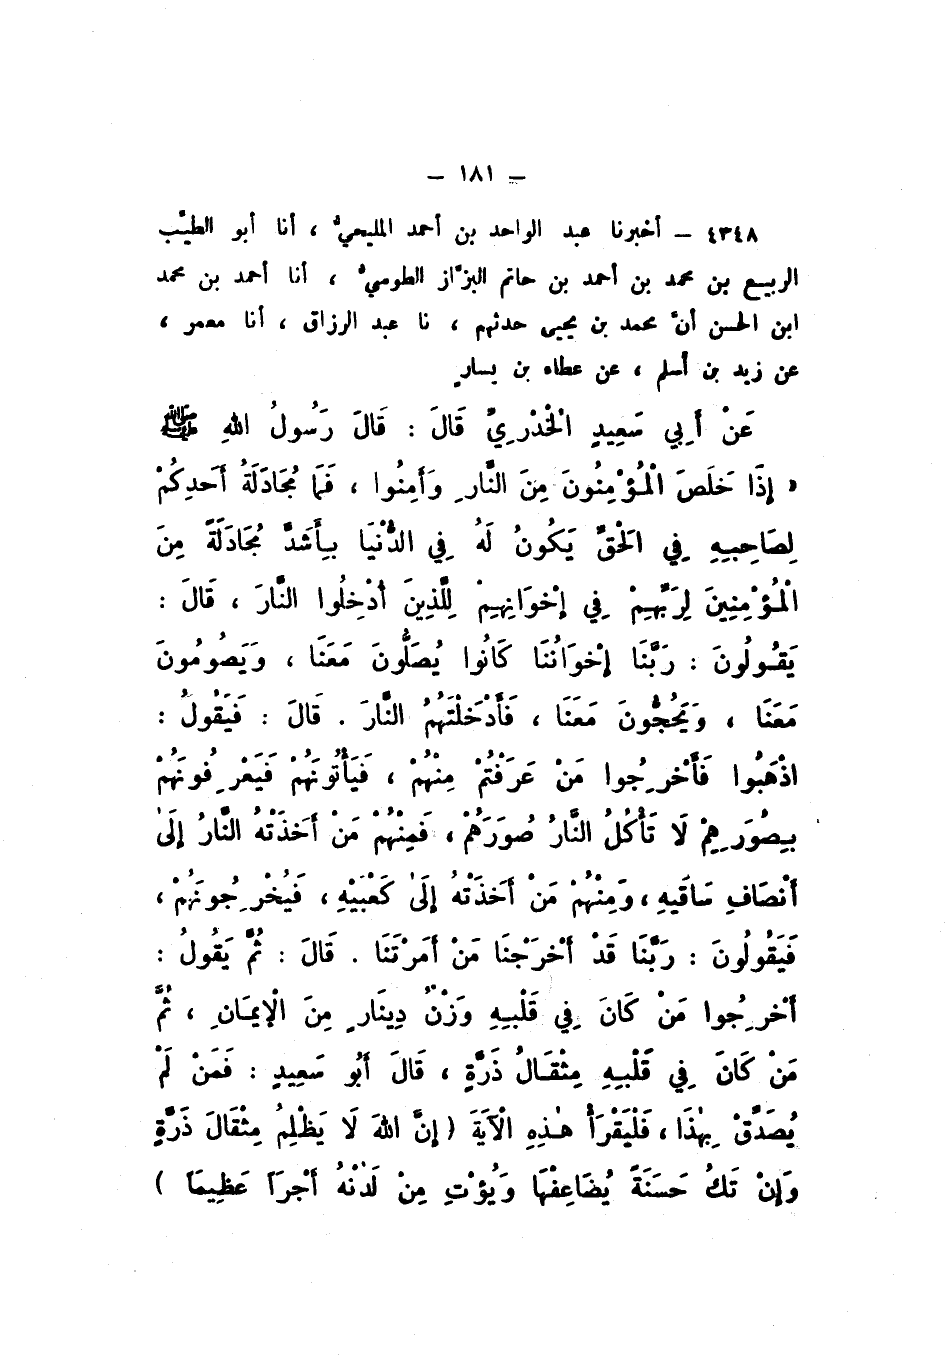 – ١٨١ –
٤٣٤٨ – أخبرنا عبد الواحد بن أحمد المليحيُّ ، أنا أبو الطيِّب
الربيع بن محمد بن أحمد بن حاتم البزَّاز الطوسيُّ ، أنا أحمد بن محمد
ابن الحسن أنَّ محمد بن يحيى حدثهم ، نا عبد الرزاق ، أنا معمر ،
عن زيد بن أسلم ، عن عطاء بن يسارٍ
عَنْ أَبِي سَعِيدٍ الْخُدْرِيِّ قَالَ : قَالَ رَسُولُ اللهِ ﷺ
« إِذَا خَلَصَ الْمُؤْمِنُونَ مِنَ النَّارِ وَأَمِنُوا ، فَمَا مُجَادَلَةُ أَحَدِكُمْ
لِصَاحِبِهِ فِي الْحَقِّ يَكُونُ لَهُ فِي الدُّنْيَا بِأَشَدَّ مُجَادَلَةً مِنَ
الْمُؤْمِنِينَ لِرَبِّهِمْ فِي إِخْوَانِهِمْ لِلَّذِينَ أُدْخِلُوا النَّارَ ، قَالَ :
يَقُولُونَ : رَبَّنَا إِخْوَانُنَا كَانُوا يُصَلُّونَ مَعَنَا ، وَيَصُومُونَ
مَعَنَا ، وَيَحُجُّونَ مَعَنَا ، فَأَدْخَلْتَهُمُ النَّارَ . قَالَ : فَيَقُولُ :
اذْهَبُوا فَأَخْرِجُوا مَنْ عَرَفْتُمْ مِنْهُمْ ، فَيَأْتُونَهُمْ فَيَعْرِفُونَهُمْ
بِصُوَرِهِمْ لَا تَأْكُلُ النَّارُ صُوَرَهُمْ ، فَمِنْهُمْ مَنْ أَخَذَتْهُ النَّارُ إِلَى
أَنْصَافِ سَاقَيهِ ، وَمِنْهُمْ مَنْ أَخَذَتْهُ إِلَى كَعْبَيْهِ ، فَيُخْرِجُونَهُمْ ،
فَيَقُولُونَ : رَبَّنَا قَدْ أَخْرَجْنَا مَنْ أَمَرْتَنَا . قَالَ : ثُمَّ يَقُولُ :
أَخْرِجُوا مَنْ كَانَ فِي قَلْبِهِ وَزْنُ دِينَارٍ مِنَ الْإِيمَانِ ، ثُمَّ
مَنْ كَانَ فِي قَلْبِهِ مِثْقَالُ ذَرَّةٍ ، قَالَ أَبُو سَعِيدٍ : فَمَنْ لَمْ
يُصَدِّقْ بِهٰذَا ، فَلْيَقْرَأْ هٰذِهِ الْآيَةَ ( إِنَّ اللهَ لَا يَظْلِمُ مِثْقَالَ ذَرَّةٍ
وَإِنْ تَكُ حَسَنَةً يُضَاعِفْهَا وَيُؤْتِ مِنْ لَدُنْهُ أَجْرًا عَظِيمًا )